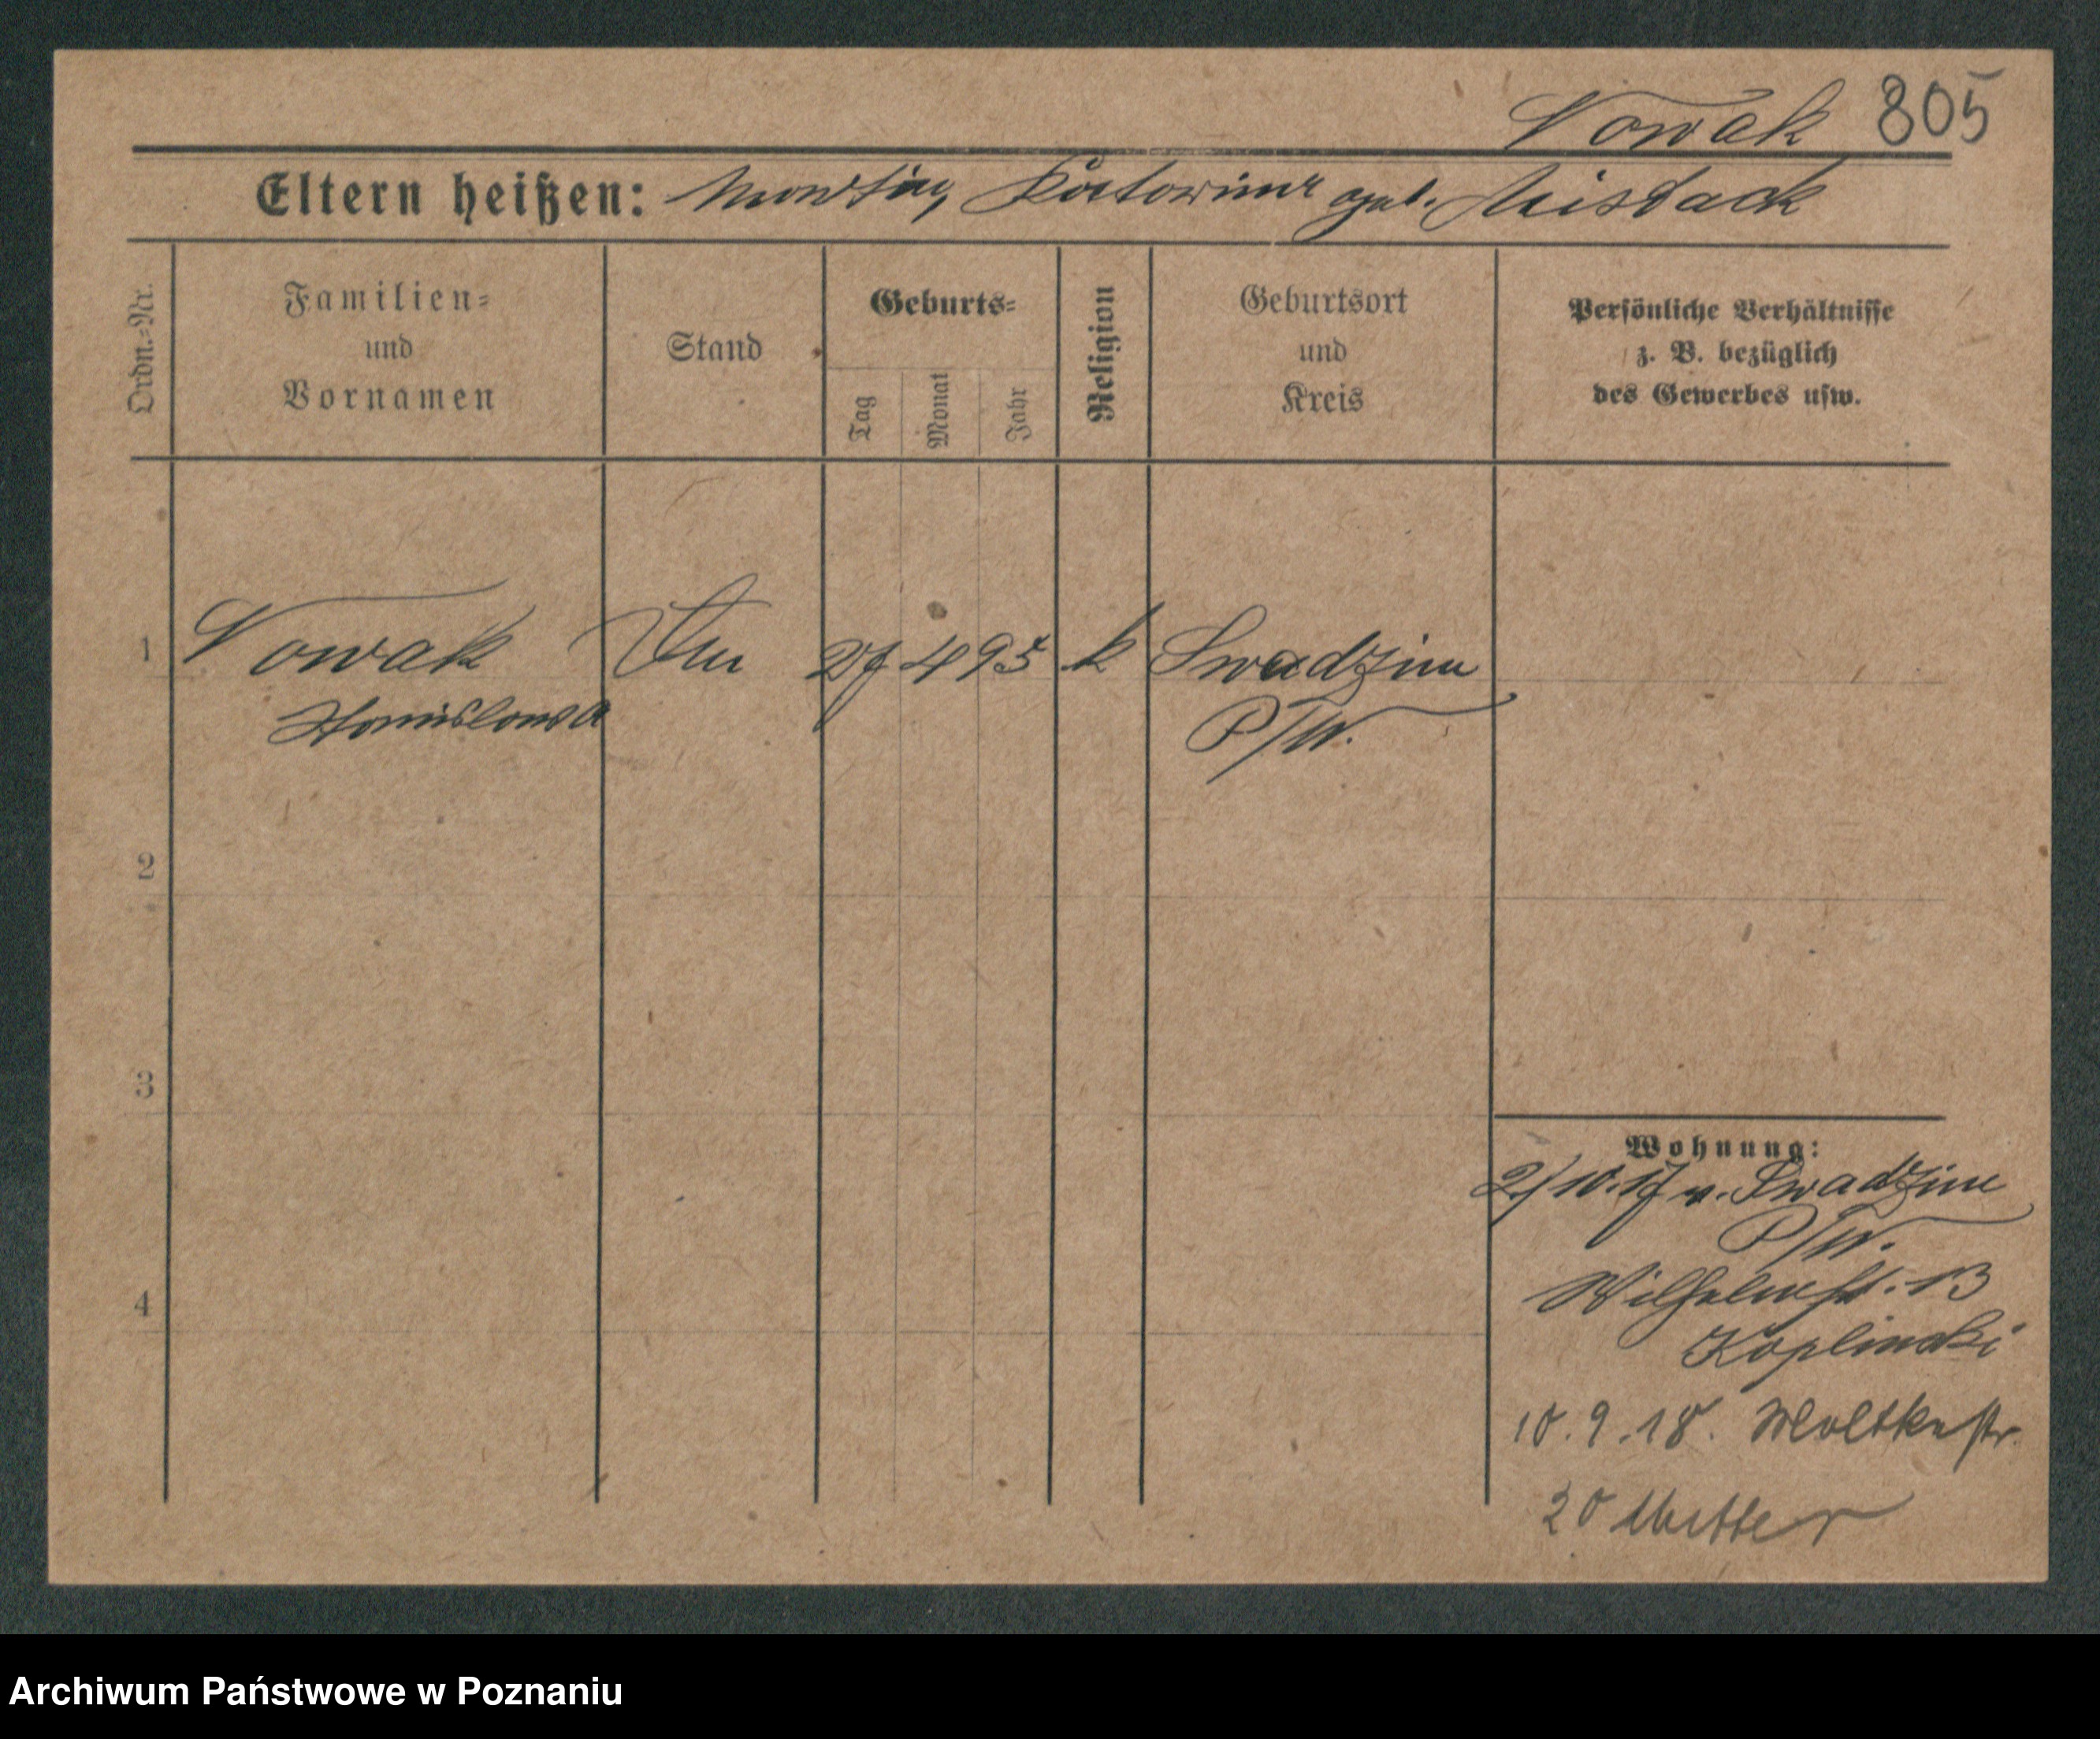 Nowak 805
Eltern heißen: geb.
Ordn.-Nr.
Familien-
und
Vornamen
Stand
Geburts-
Tag
Monat
Jahr
Religion
Geburtsort
und
Kreis
Persönliche Verhältnisse
z. B. bezüglich
des Gewerbes usw.
1 Nowak 27 4 95 k Swadzim
Stanislowa P/W.
2
3
4
Wohnung:
2/10.17 v. Swadzim
P/W.
Wilhelmst. 13
Koplinski
10.9.18. Moltkestr.
20
Archiwum Państwowe w Poznaniu